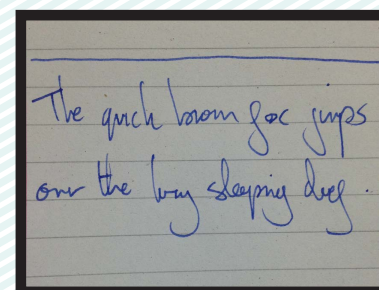 The quick brown fox jumps
over the lazy sleeping dog.